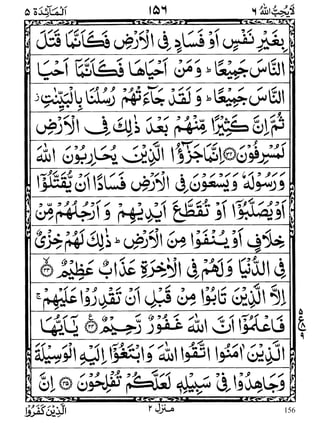 لَا يُحِبُّ اللهُ ٦ ١٥٦ اَلْمَآئِدَة ٥
بِغَيْرِ نَفْسٍ اَوْ فَسَادٍ فِى الْاَرْضِ فَكَاَنَّمَا قَتَلَ
النَّاسَ جَمِيْعًا ؕ وَ مَنْ اَحْيَاهَا فَكَاَنَّمَاۤ اَحْيَا
النَّاسَ جَمِيْعًا ؕ وَ لَقَدْ جَآءَتْهُمْ رُسُلُنَا بِالْبَيِّنٰتِ ز
ثُمَّ اِنَّ كَثِيْرًا مِّنْهُمْ بَعْدَ ذٰلِكَ فِى الْاَرْضِ
لَمُسْرِفُوْنَ ﴿٣٢﴾ اِنَّمَا جَزٰٓؤُا الَّذِيْنَ يُحَارِبُوْنَ اللهَ
وَ رَسُوْلَهٗ وَ يَسْعَوْنَ فِى الْاَرْضِ فَسَادًا اَنْ يُّقَتَّلُوْۤا
اَوْ يُصَلَّبُوْۤا اَوْ تُقَطَّعَ اَيْدِيْهِمْ وَ اَرْجُلُهُمْ مِّنْ
خِلَافٍ اَوْ يُنْفَوْا مِنَ الْاَرْضِ ؕ ذٰلِكَ لَهُمْ خِزْىٌ
فِى الدُّنْيَا وَ لَهُمْ فِى الْاٰخِرَةِ عَذَابٌ عَظِيْمٌ ﴿٣٣﴾
اِلَّا الَّذِيْنَ تَابُوْا مِنْ قَبْلِ اَنْ تَقْدِرُوْا عَلَيْهِمْ ۚ
فَاعْلَمُوْۤا اَنَّ اللهَ غَفُوْرٌ رَّحِيْمٌ ﴿٣٤﴾ يٰۤاَيُّهَا
الَّذِيْنَ اٰمَنُوا اتَّقُوا اللهَ وَ ابْتَغُوْۤا اِلَيْهِ الْوَسِيْلَةَ
وَ جَاهِدُوْا فِىْ سَبِيْلِهٖ لَعَلَّكُمْ تُفْلِحُوْنَ ﴿٣٥﴾ اِنَّ
الَّذِيْنَ كَفَرُوْا منزل ٢ 156